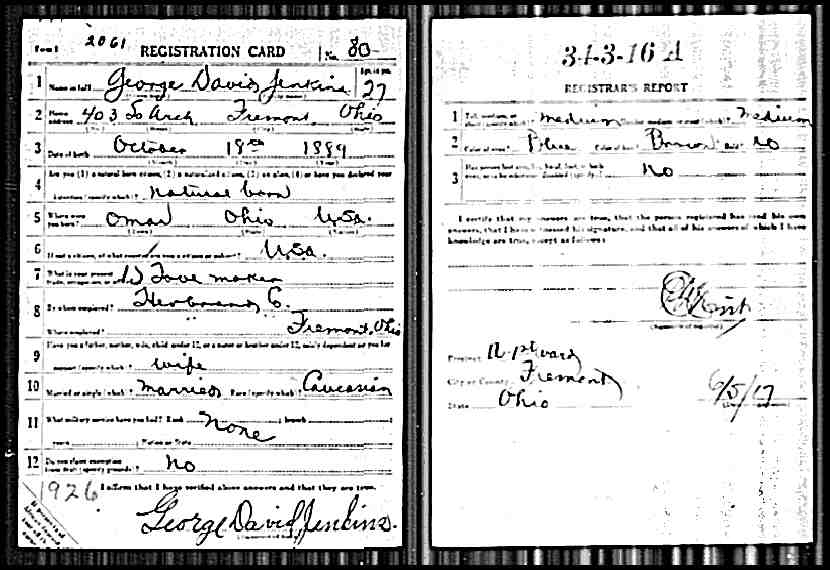 Form 1 2061 REGISTRATION CARD No. 80
1 Name in full George David Jenkins Age in yrs. 27
2 Home address 403 So Arch Fremont Ohio
3 Date of birth October 18th 1889
Are you (1) a natural born citizen, (2) a naturalized citizen, (3) an alien, (4) or have you declared your
4 intention (specify which)? Natural born
5 Where were you born? Omar Ohio USA.
6 If not a citizen, of what country are you a citizen or subject? USA.
7 What is your present trade, occupation, or office? maker
8 By whom employed?
Where employed? Fremont, Ohio
9 Have you a father, mother, wife, child under 12, or a sister or brother under 12, solely dependent on you for
support (specify which)? wife
10 Married or single (which)? married Race (specify which)? Caucasian
11 What military service have you had? Rank None branch
years Nation or State
12 Do you claim exemption from draft (specify grounds)? No
1926 I affirm that I have verified above answers and that they are true.
George David Jenkins.
34-3-16 A
REGISTRAR'S REPORT
1 Tall, medium, or short (specify which)? medium Slender, medium, or stout (which)? medium
2 Color of eyes? Blue Color of hair? Brown Bald? No
3 Has person lost arm, leg, hand, foot, or both eyes, or is he otherwise disabled (specify)? No
I certify that my answers are true, that the person registered has read his own
answers, that I have witnessed his signature, and that all of his answers of which I have
knowledge are true, except as follows:
(Signature of registrar)
Precinct ward
City or County Fremont
State Ohio 6/5/17